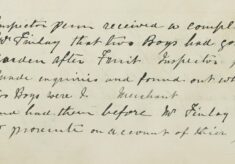 Inspector Penn received a compl
Mr Finlay that two Boys had go
Garden after Fruit Inspector
made inquiries and found out wh
two Boys were I. Merchant
and had them before Mr Finlay
prosecute on account of their